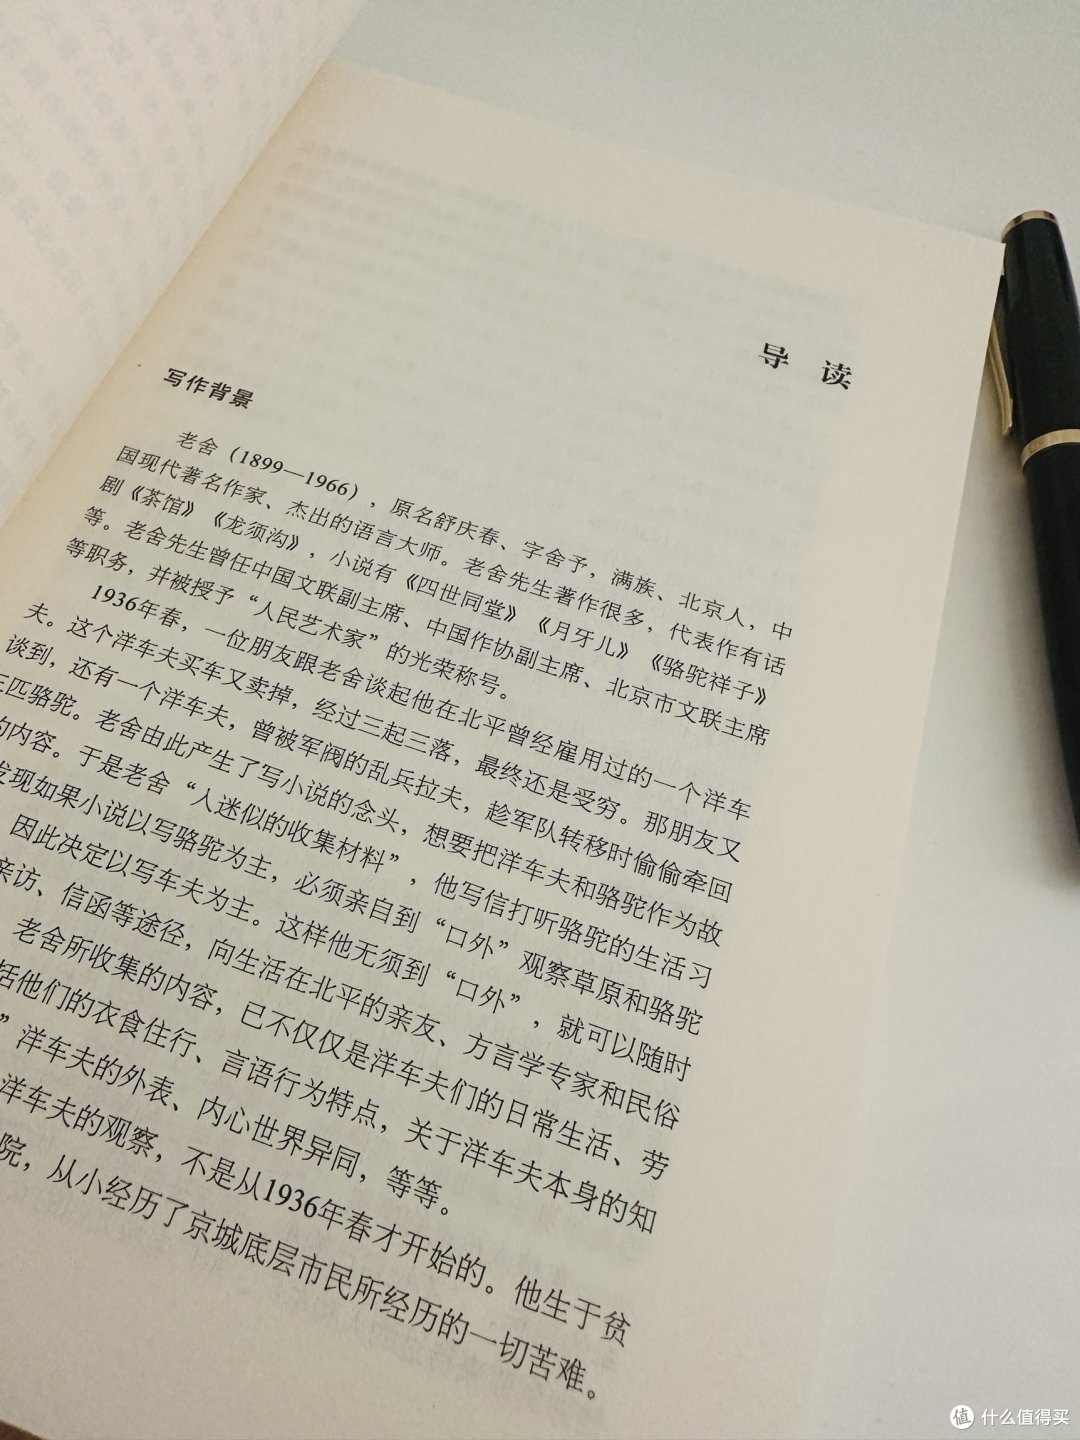 导 读
写作背景
老舍（1899—1966），原名舒庆春、字舍予，满族、北京人，中
国现代著名作家、杰出的语言大师。老舍先生著作很多，代表作有话
剧《茶馆》《龙须沟》，小说有《四世同堂》《月牙儿》《骆驼祥子》
等。老舍先生曾任中国文联副主席、中国作协副主席、北京市文联主席
等职务，并被授予“人民艺术家”的光荣称号。
1936年春，一位朋友跟老舍谈起他在北平曾经雇用过的一个洋车
夫。这个洋车夫买车又卖掉，经过三起三落，最终还是受穷。那朋友又
谈到，还有一个洋车夫，曾被军阀的乱兵拉夫，趁军队转移时偷偷牵回
三匹骆驼。老舍由此产生了写小说的念头，想要把洋车夫和骆驼作为故
的内容。于是老舍“入迷似的收集材料”，他写信打听骆驼的生活习
发现如果小说以写骆驼为主，必须亲自到“口外”观察草原和骆驼
因此决定以写车夫为主。这样他无须到“口外”，就可以随时
亲访、信函等途径，向生活在北平的亲友、方言学专家和民俗
老舍所收集的内容，已不仅仅是洋车夫们的日常生活、劳
括他们的衣食住行、言语行为特点，关于洋车夫本身的知
”洋车夫的外表、内心世界异同，等等。
洋车夫的观察，不是从1936年春才开始的。他生于贫
院，从小经历了京城底层市民所经历的一切苦难。
值 什么值得买